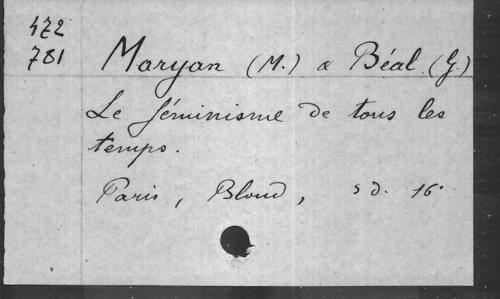 472
781
Maryan (M.) & Béal. (G.)
Le féminisme de tous les
temps.
Paris, Bloud, s d. 16°